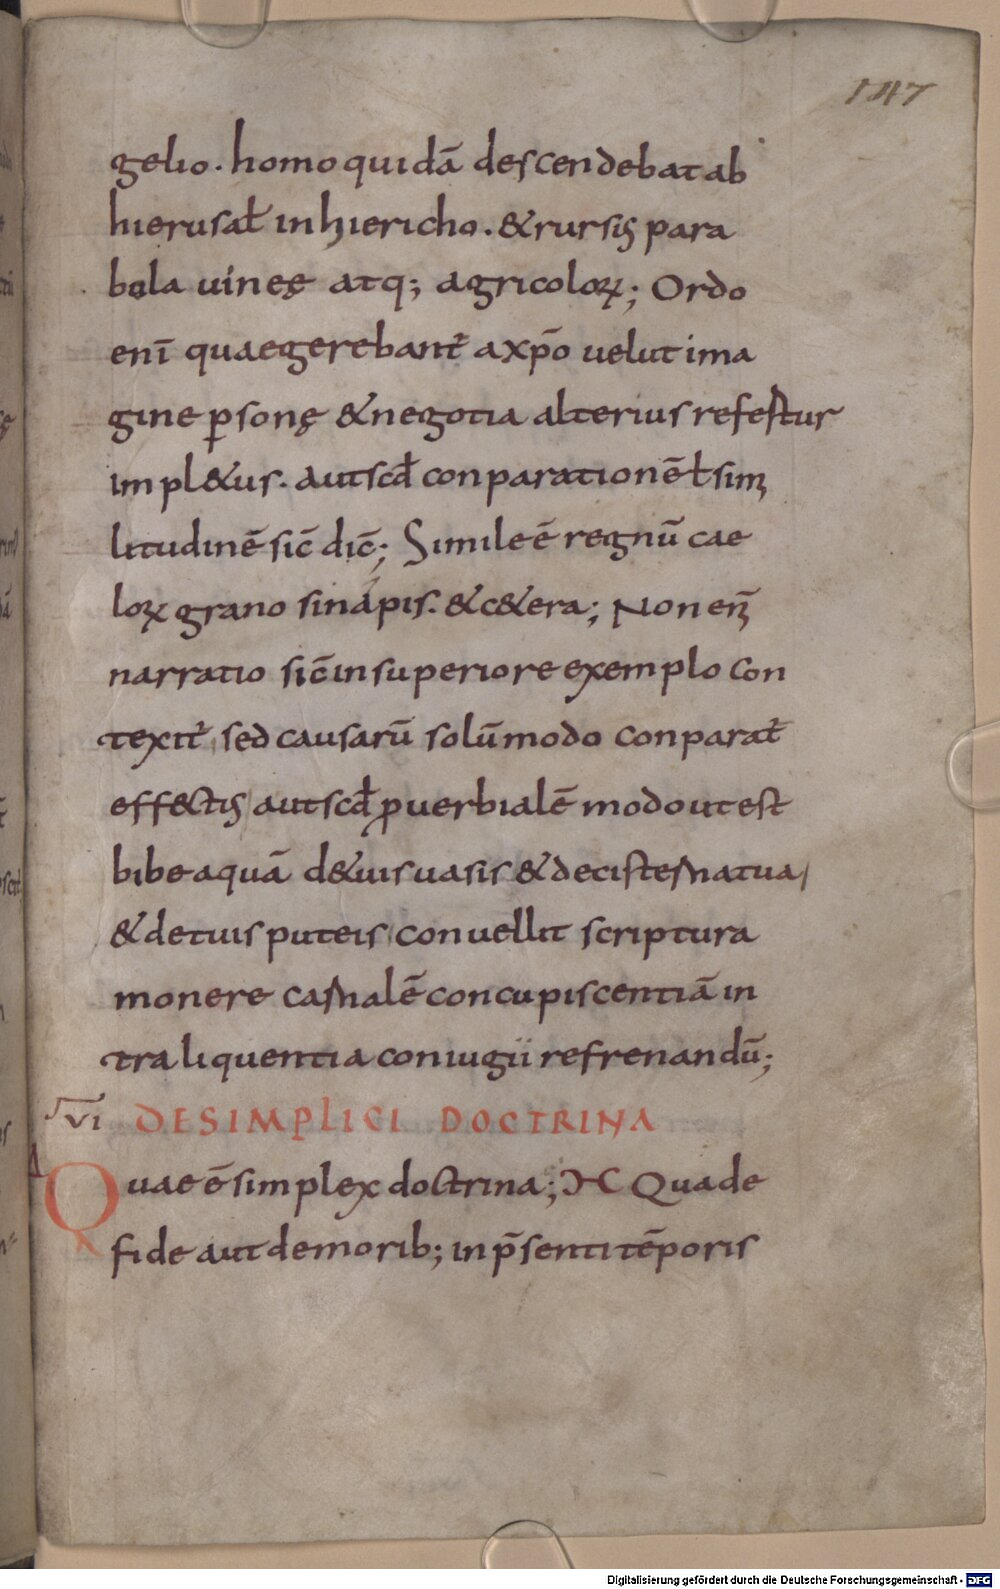 147
gelio. homo quidā descendebat ab
hierusał in hiericho. & rursis para
bola uineę atq; agricoloꝝ; Ordo
enī quae gerebant̄ a xp̄o uelut ima
gine ꝑsonę & negotia alterius refestur
impl&us. aut scd̄ conparationē ł sim
litudinē sic̄ dic̄; Simile ē regnū cae
loꝝ grano sinapis. & c&era; Non eni
narratio sic̄ in superiore exemplo con
texit̄ sed causarū solūmodo conparat̄
eff&tis aut scd̄ ꝓuerbialē modo ut est
bibe aquā d& uis uasis & de cisternatua,
& de tuis puteis conuellit scriptura
monere carnalē concupiscentiā in
tra liquentia coniugii refrenandū;
VI DE SIMPLICI DOCTRINA
Δ Quae ē simplex doctrina; Quade
fide aut de morib; in p̄senti tēporis
Digitalisierung gefördert durch die Deutsche Forschungsgemeinschaft - DFG